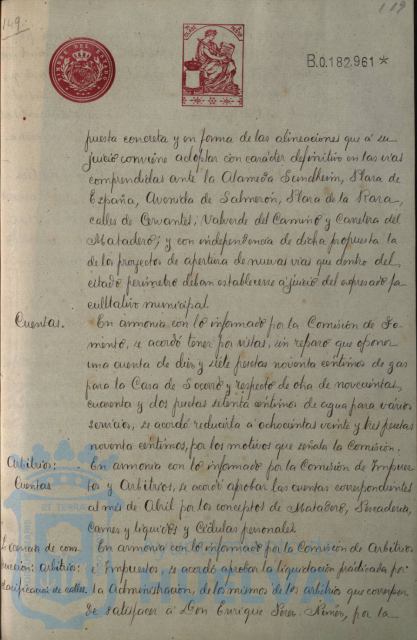 149.
119
B.0.182.961*
puesta concreta y en forma de las alineaciones que á su
juicio conviene adoptar con carácter definitivo en las vías
comprendidas ante la Alameda Sundheim, Plaza de
España, Avenida de Salmerón, Plaza de la
calles de Cervantes, Valverde del Camino y Carretera del
Matadero; y con independencia de dicha propuesta la
de los proyectos de apertura de nuevas vias que dentro del
citado perimetro deban establecerse a juicio del expresado fa
cultativo municipal.
Cuentas. En armonia con lo informado por la Comisión de Fo-
mento, se acordó tener por vistas, sin reparo que oponer
una cuenta de diez y siete pesetas noventa centimos de gas
para la Casa de Socorro y respecto de otra de novecientas
cuarenta y dos pesetas setenta centimos de agua para varios
servicios, se acordó reducirla a ochocientas veinte y tres pesetas
noventa centimos, por los motivos que señala la Comisión.
Arbitrios: En armonia con lo informado por la Comisión de Impues-
Cuentas tos y Arbitrios, se acordó aprobar las cuentas correspondientes
al mes de Abril por los conceptos de Matadero, Pescaderia,
Carnes y liquidos y Cédulas personales.
En armonia con lo informado por la Comisión de Arbitrios
Arbitrios: é Impuestos, se acordó aprobar la liquidación practicada por
de calles. la Administración, de los mismos de los arbitrios que correspon
de satisfacer á Don Enrique Pérez por la